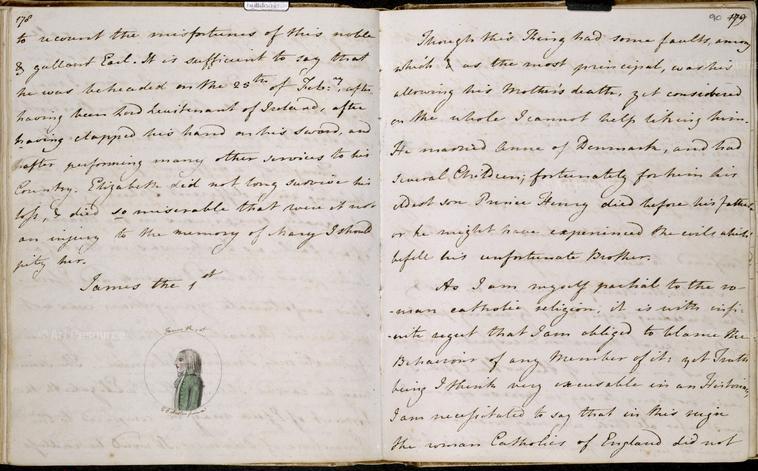 178
to recount the misfortunes of this noble
& gallant Earl. It is sufficient to say that
he was beheaded on the 25th of Feb:ry, after
having been Lord Leuitenant of Ireland, after
having clapped his hand on his sword, and
after performing many other services to his
Country. Elizabeth did not long survive his
loss, & died so miserable that were it not
an injury to the memory of Mary I should
pity her.
James the 1st
James the 1st
90 179
Though this King had some faults, among
which & as the most principal, was his
allowing his Mother's death, yet considered
on the whole I cannot help liking him.
He married Anne of Denmark, and had
several Children; fortunately for him his
eldest son Prince Henry died before his father
or he might have experienced the evils which
befell his unfortunate Brother.
As I am myself partial to the ro-
-man catholic religion, it is with infi-
-nite regret that I am obliged to blame the
Behaviour of any Member of it: yet Truth
being I think very excusable in an Historian,
I am necessitated to say that in this reign
the roman Catholics of England did not